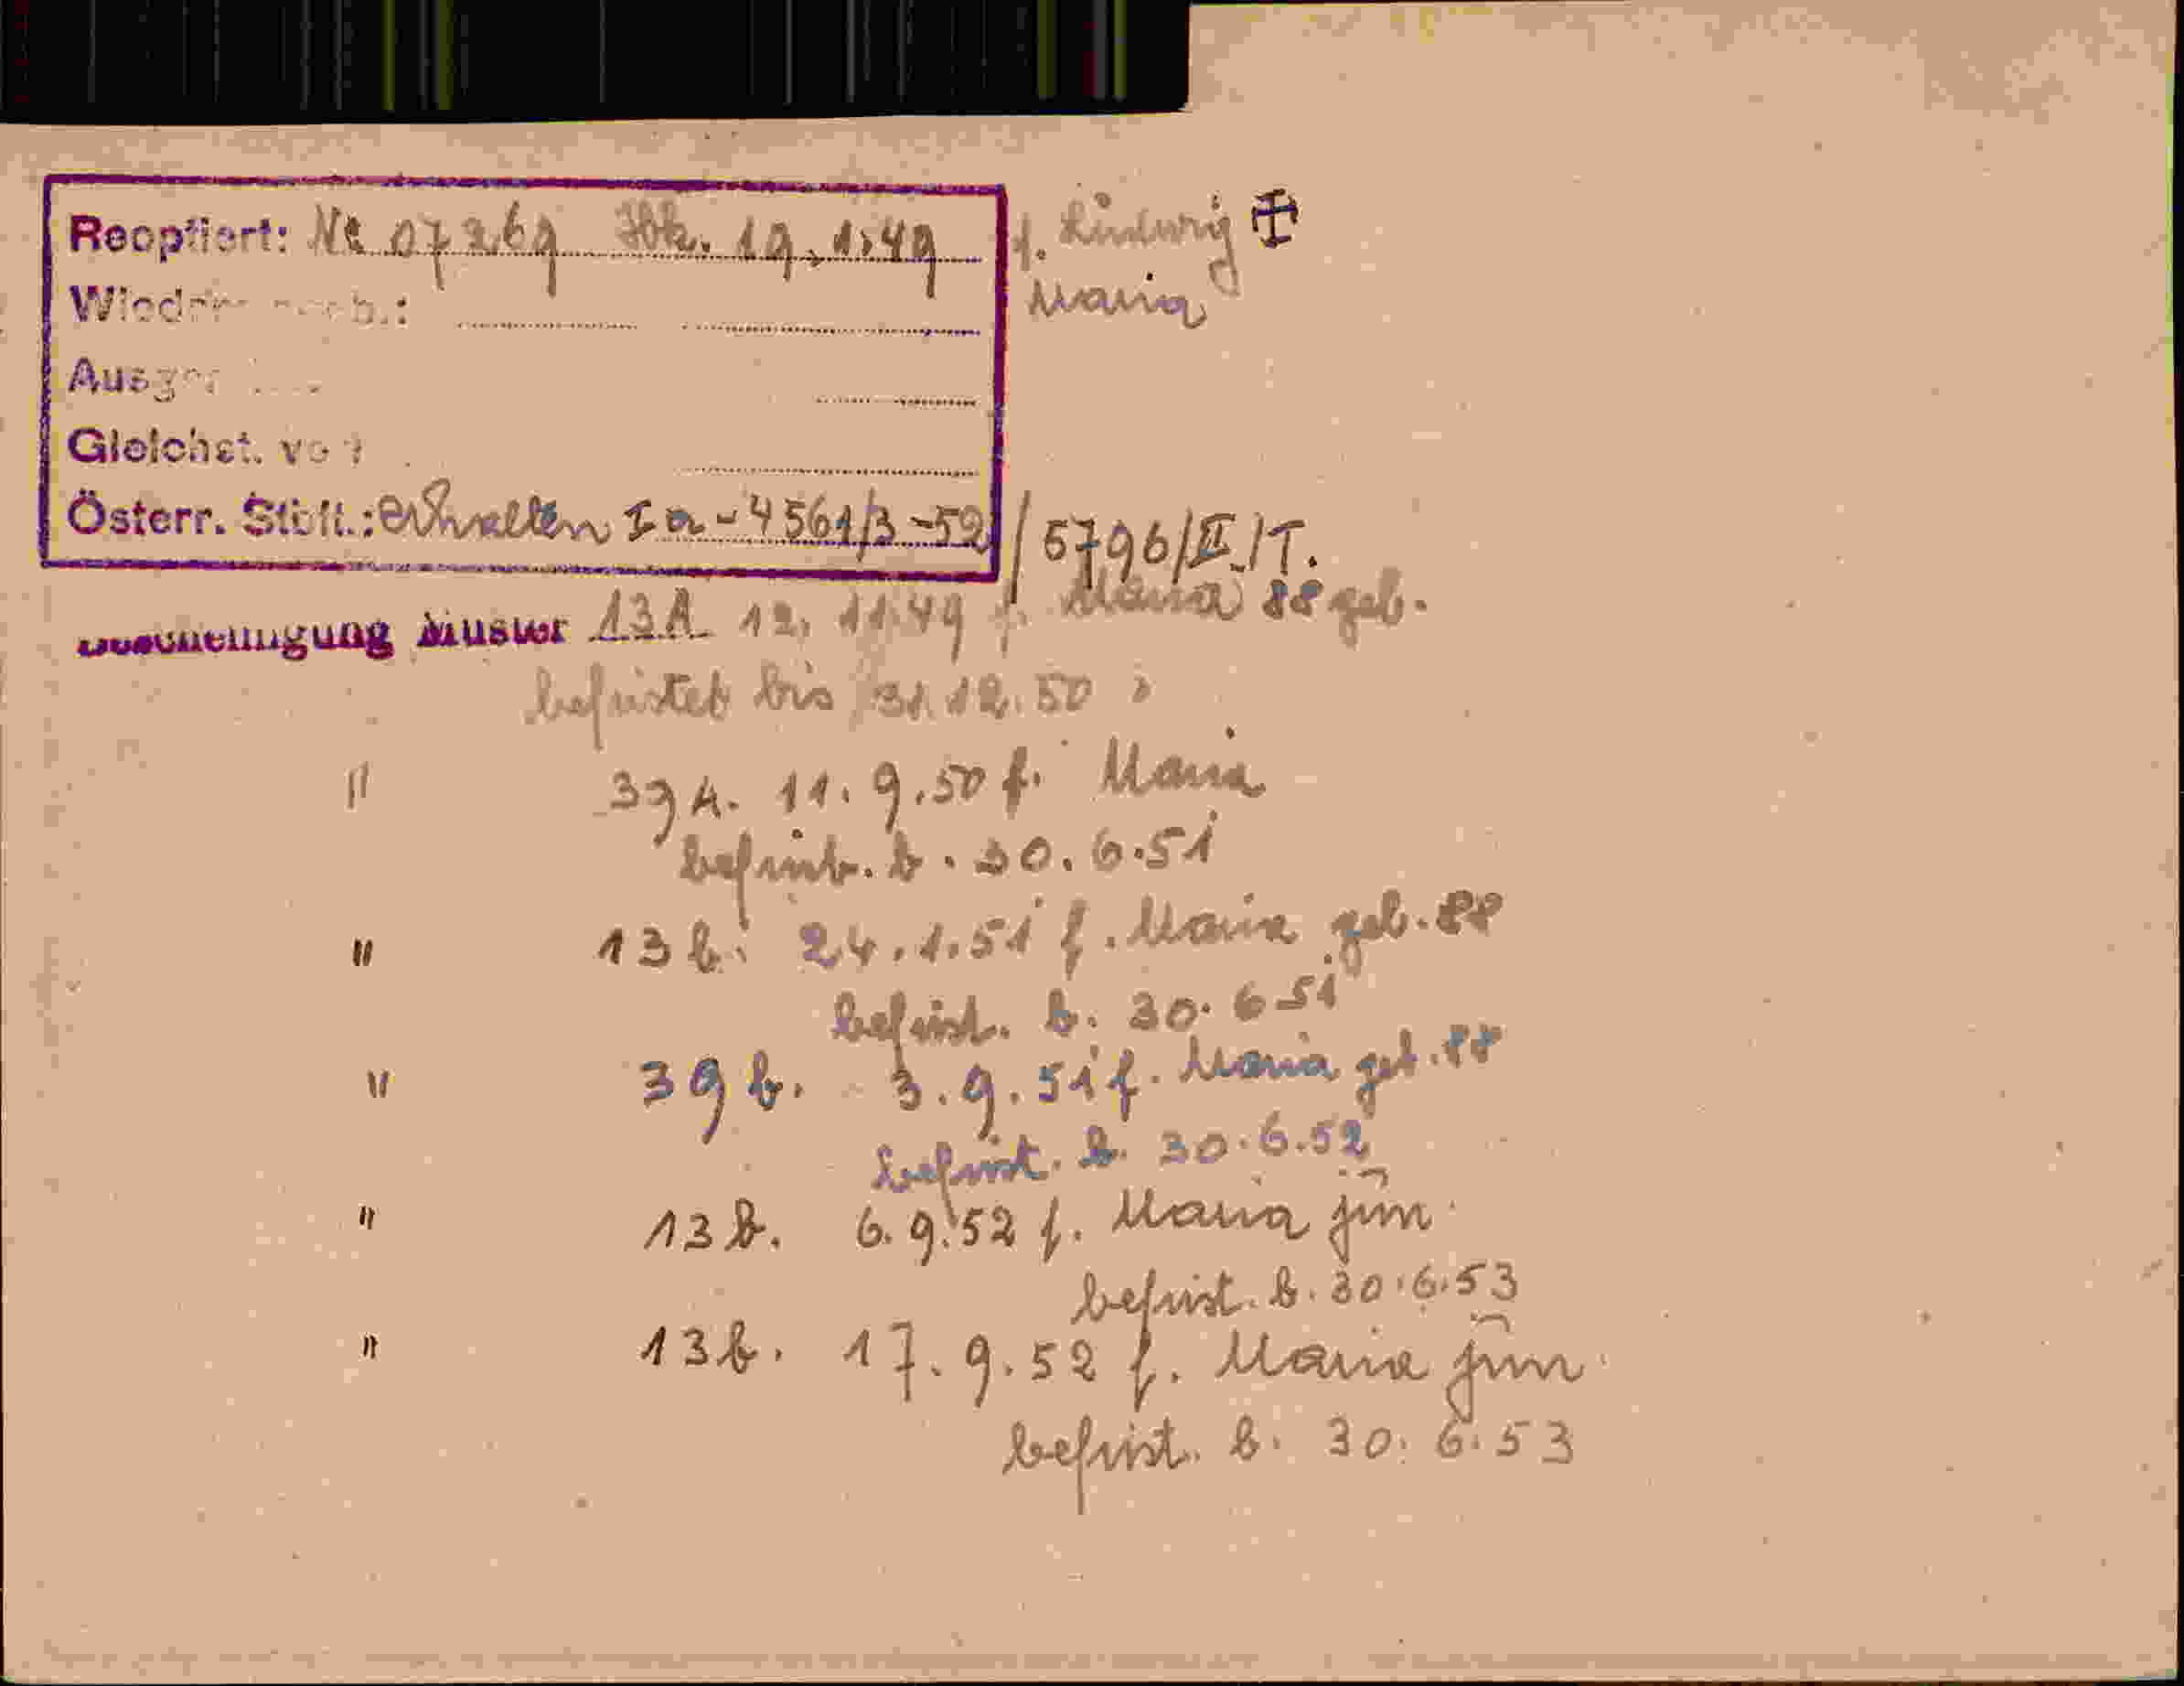 Reoptiert: Nr 07269 Ibk. 19.1.49 f. Ludwig
Maria
Gleichst.
Österr. Stbft.: erhalten I a - 4561/3 - 52 / 5796/II/T.
Bescheinigung Muster 13A 12. 11. 49 f. Maria 88 geb.
befristet bis 31.12.50
" 39A. 11. 9. 50 f. Maria
befrist. b. 30. 6. 51
" 13b. 24. 1. 51 f. Maria geb. 88
befrist. b. 30. 6 51
" 39b. 3. 9. 51 f. Maria geb. 88
befrist. b. 30. 6. 52
" 13b. 6. 9. 52 f. Maria jun.
befrist. b. 30. 6. 53
" 13b. 17. 9. 52 f. Maria jun.
befrist. b. 30. 6. 53